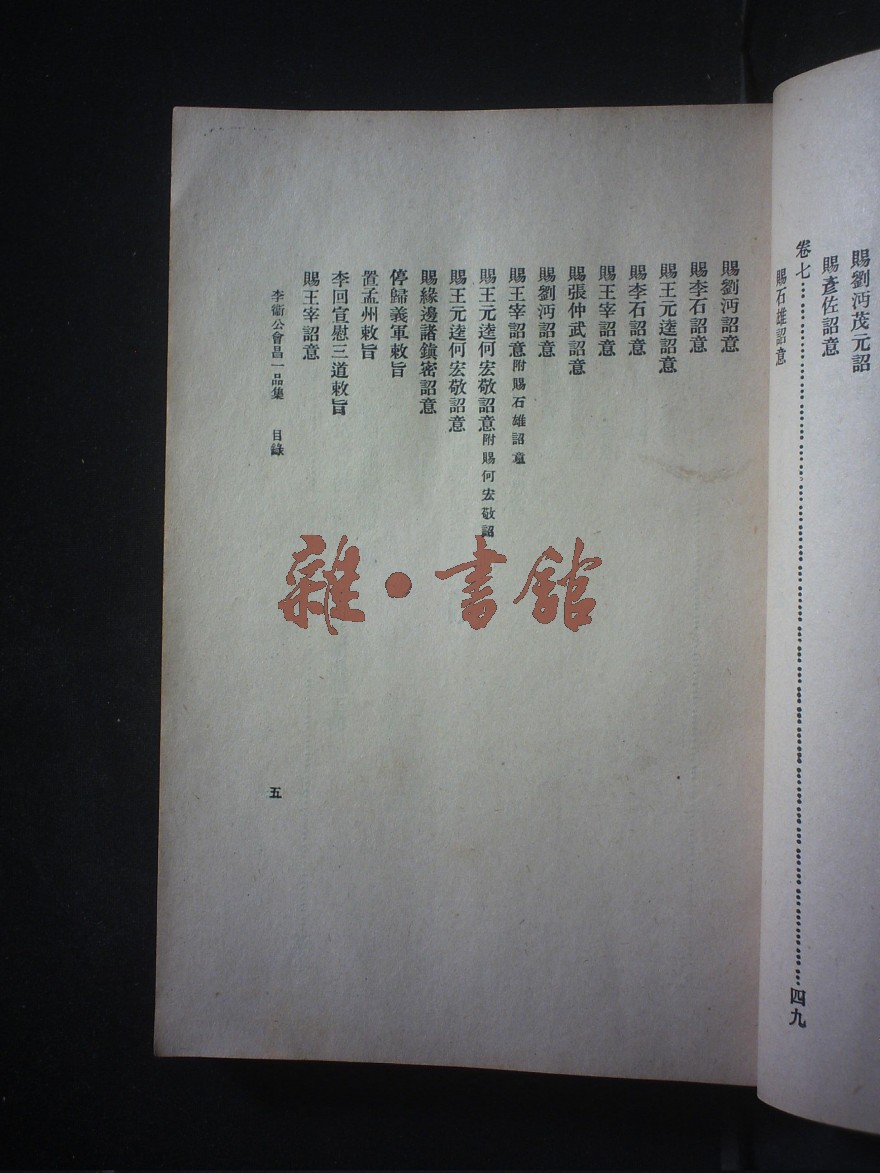 賜劉沔茂元詔
賜彥佐詔意
卷七……四九
賜石雄詔意
賜劉沔詔意
賜李石詔意
賜王元逵詔意
賜李石詔意
賜王宰詔意
賜張仲武詔意
賜劉沔詔意
賜王宰詔意附賜石雄詔意
賜王元逵何宏敬詔意附賜何宏敬詔
賜王元逵何宏敬詔意
賜緣邊諸鎮密詔意
停歸義軍敕旨
置孟州敕旨
李回宣慰三道敕旨
賜王宰詔意
李衞公會昌一品集 目錄
五
雜·書館